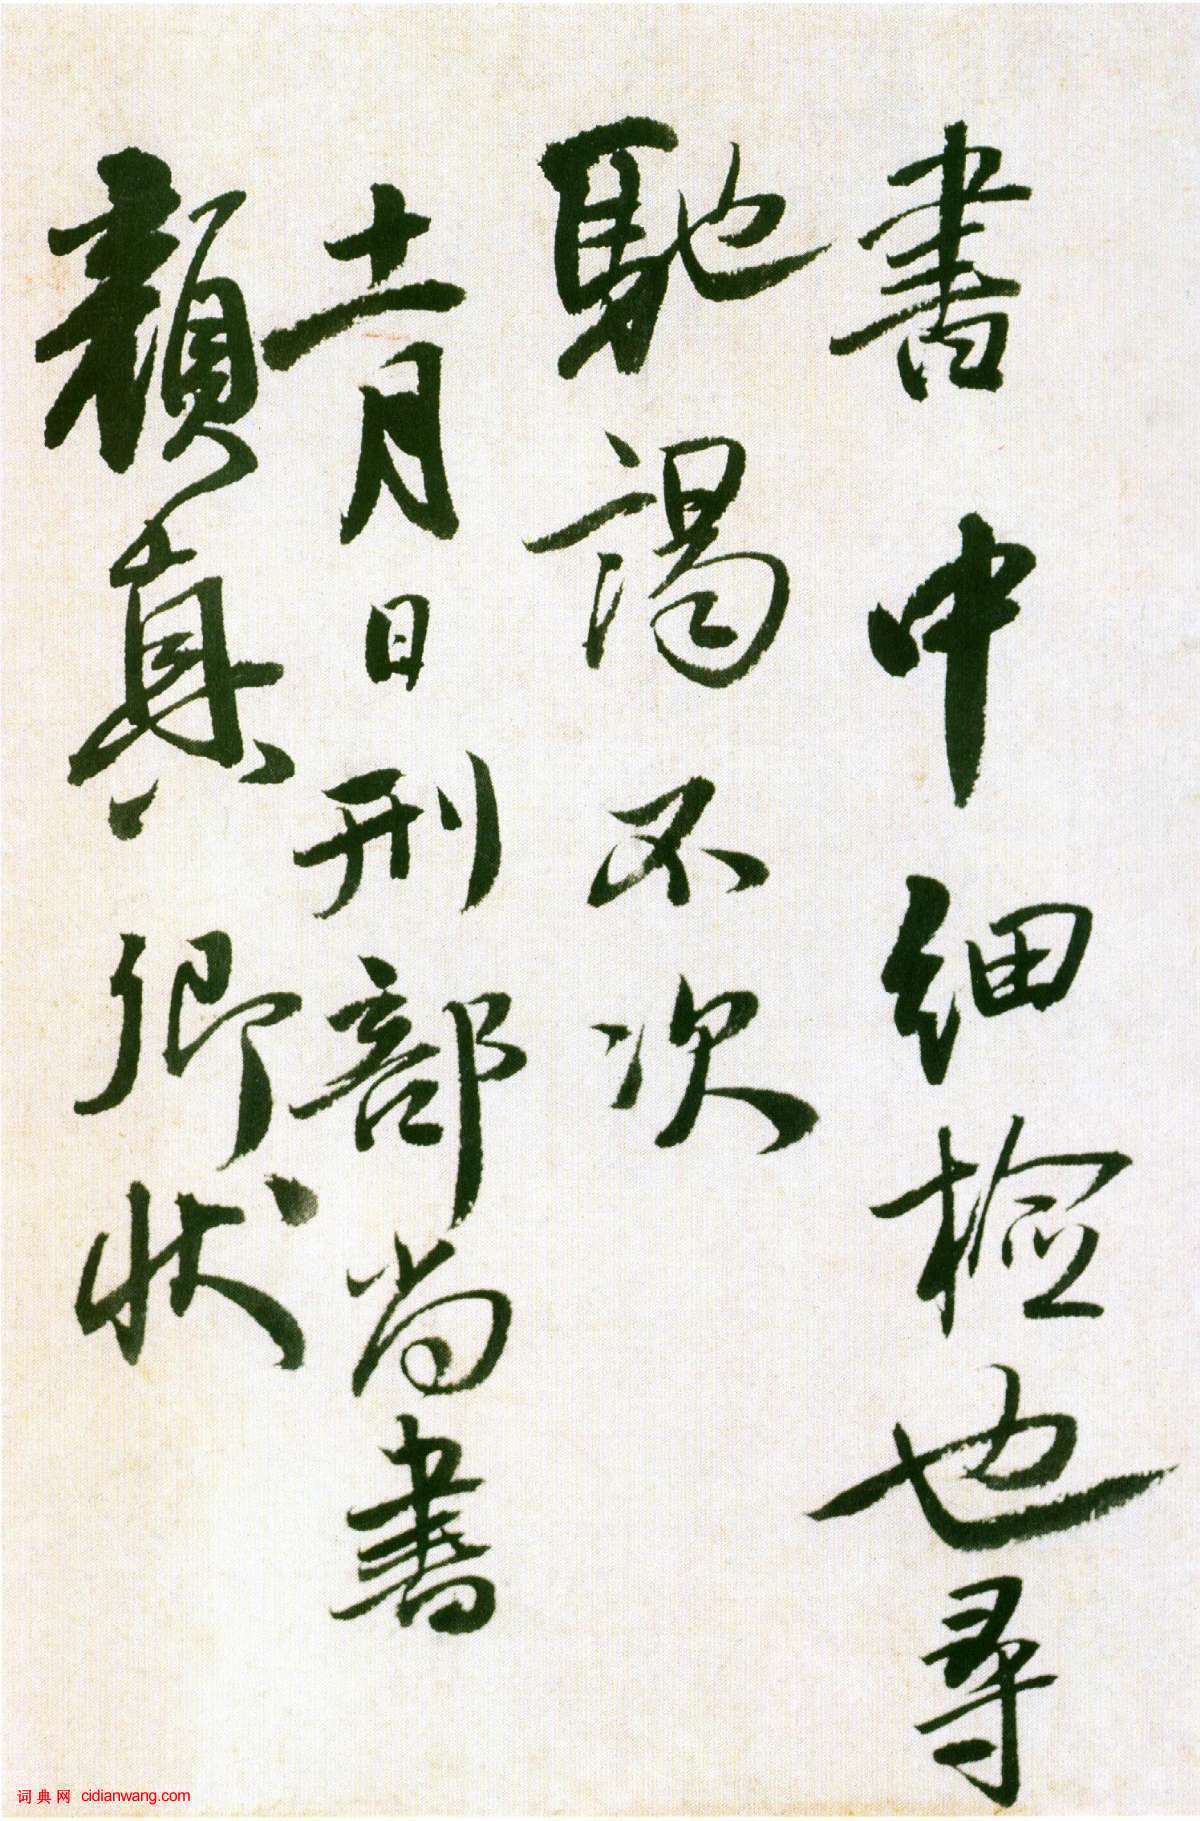 書中细检也尋
馳謁不次
十一月日刑部尚書
顏真卿状
词典网 cidianwang.com